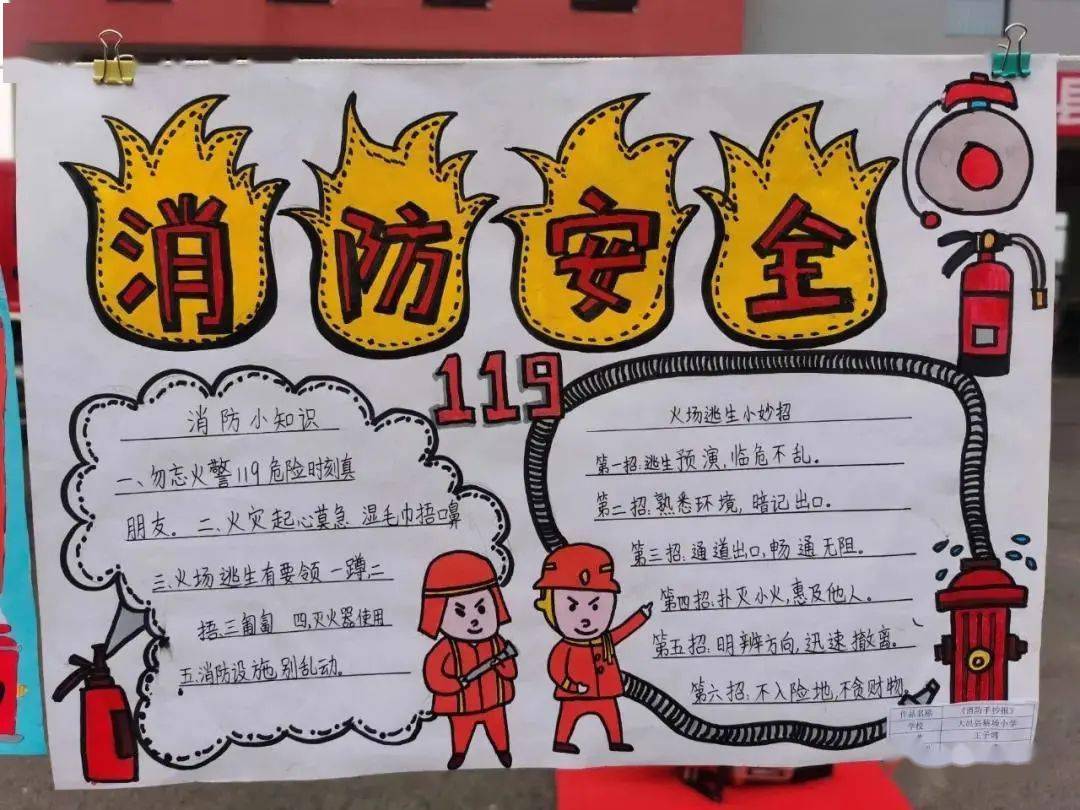 消防安全
119
消防小知识
一、勿忘火警119危险时刻真
朋友。二、火灾起心莫急 湿毛巾捂口鼻
三、火场逃生有要领 一蹲、二
捂、三匍匐 四、灭火器使用
五、消防设施,别乱动。
火场逃生小妙招
第一招:逃生预演,临危不乱。
第二招:熟悉环境,暗记出口。
第三招:通道出口,畅通无阻。
第四招:扑灭小火,惠及他人。
第五招:明辨方向,迅速撤离。
第六招:不入险地,不贪财物。
作品名称 《消防手抄报》
学校
小学
县